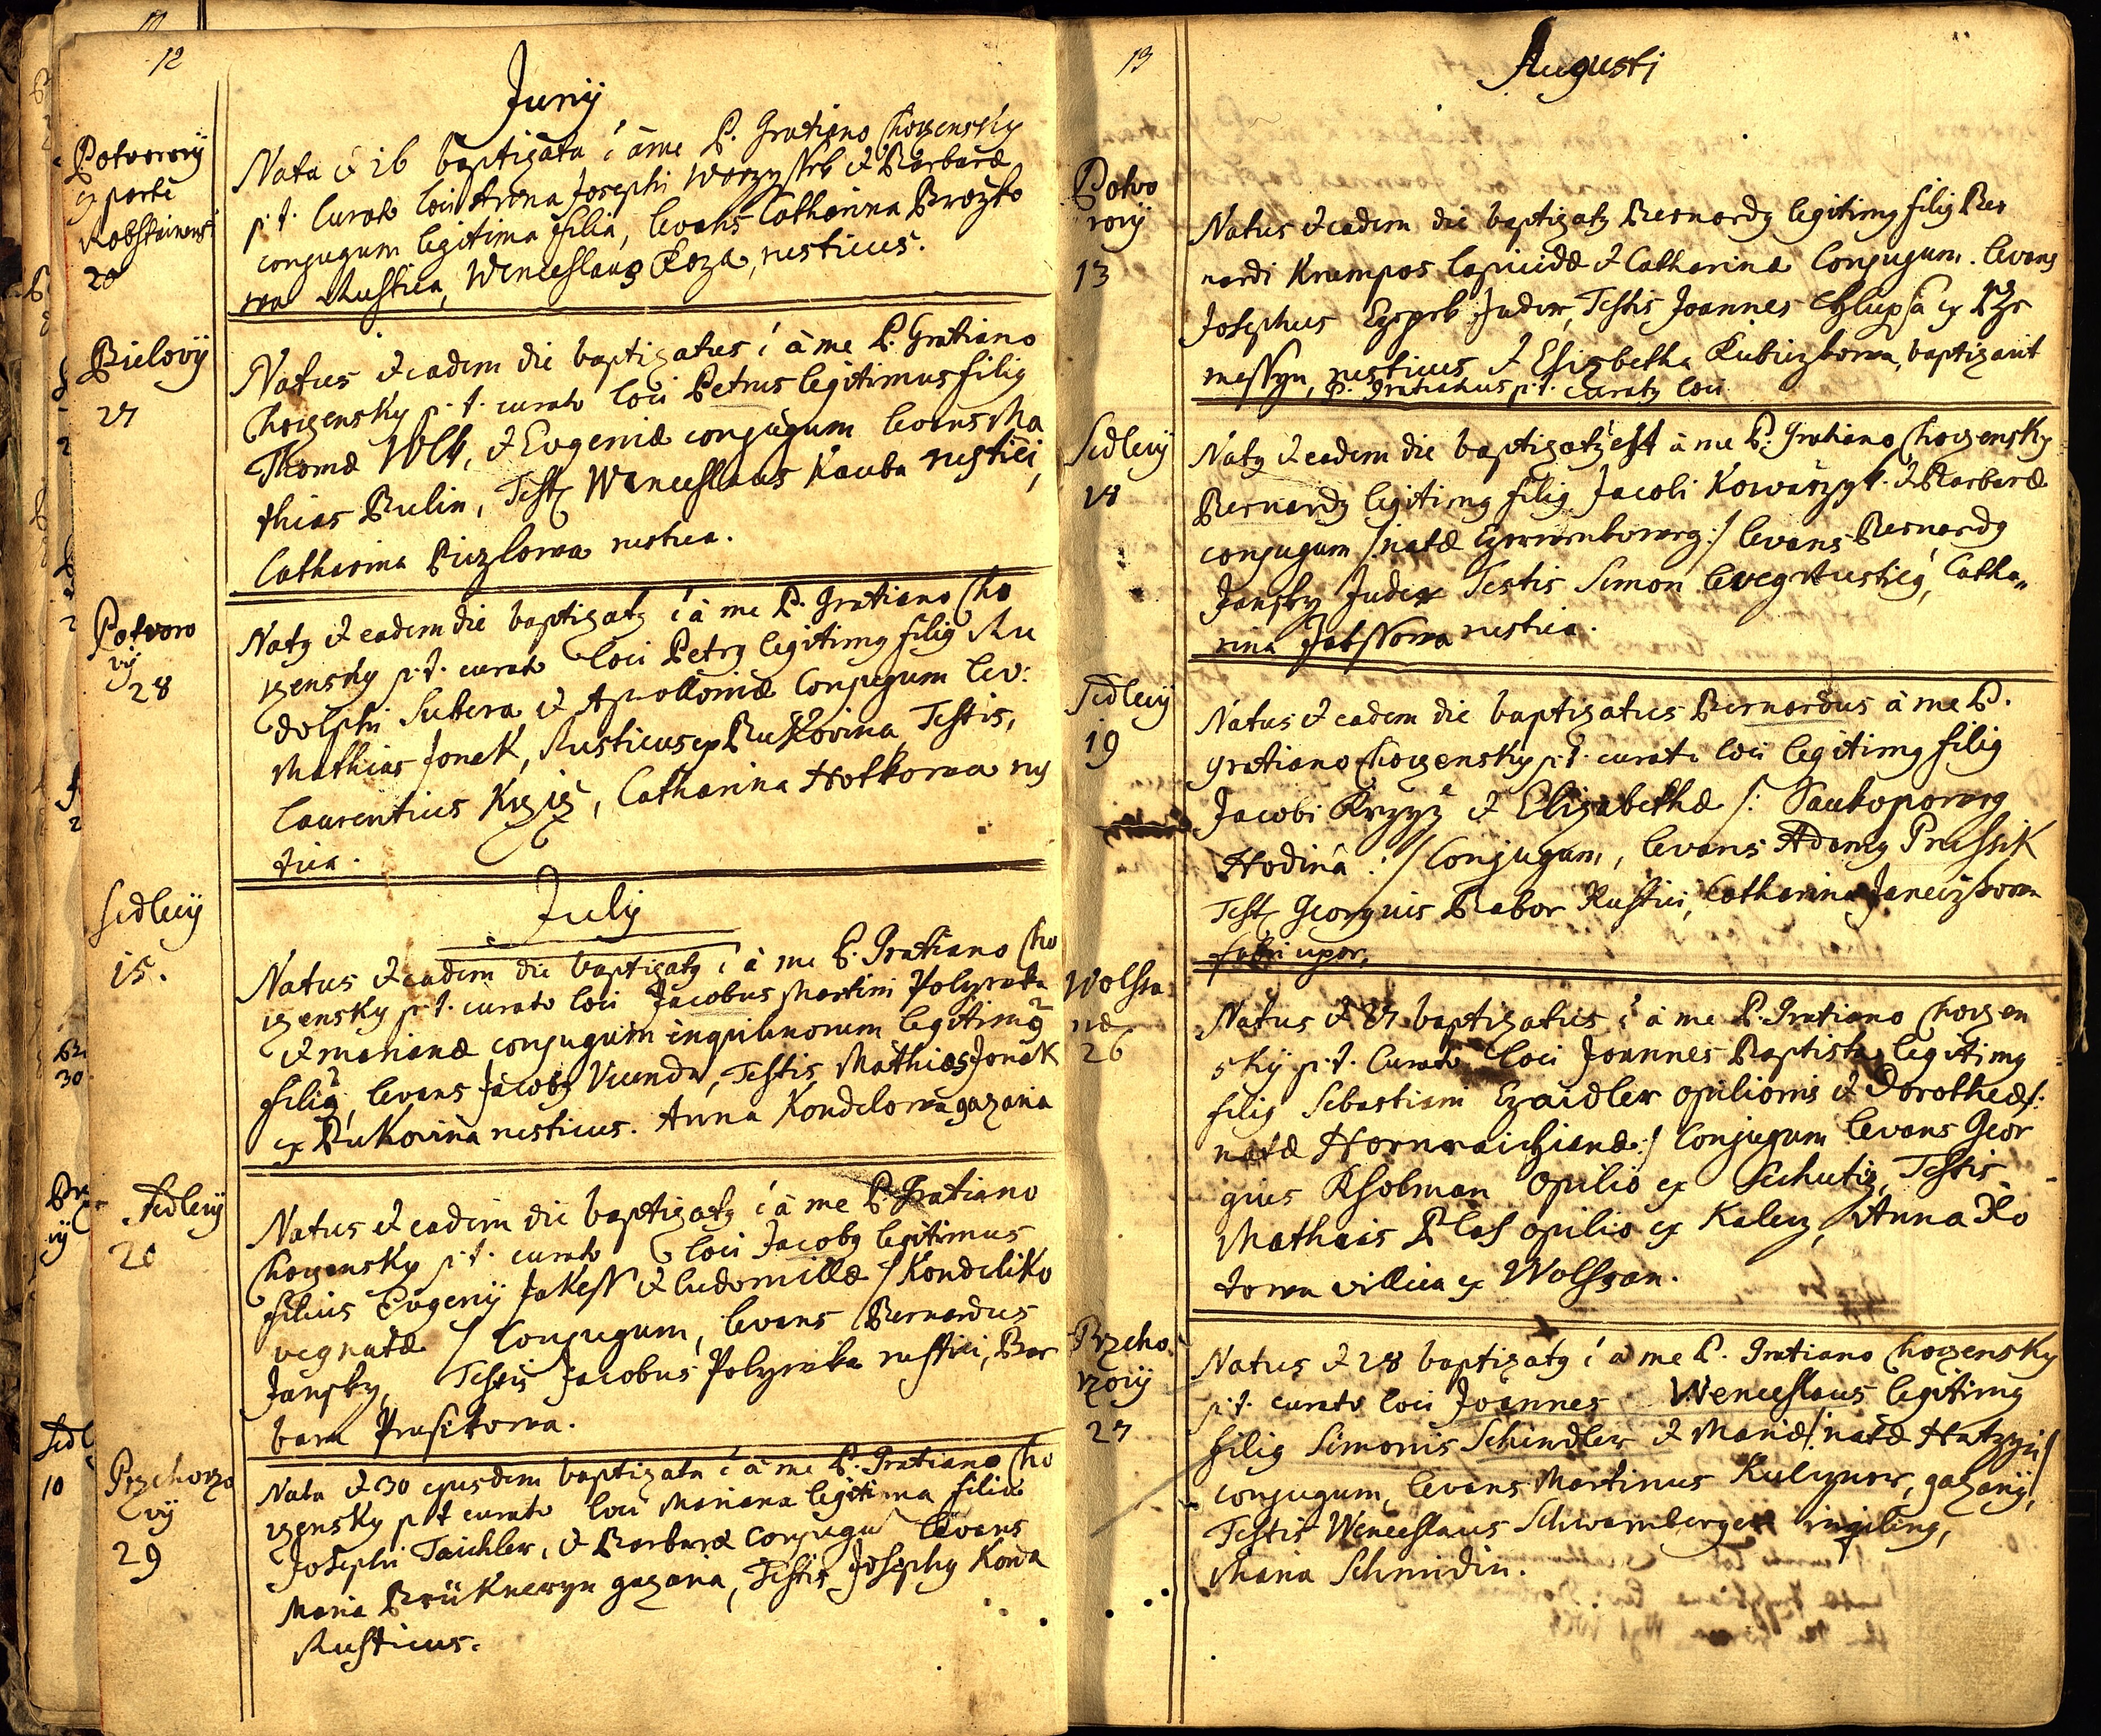 12
Junij
Potvorovij
ex parte
20
Nata & 26 baptizata ē à me P. Gratiano Chozensky
p. t. Curato loci Anna Josephi & Barbaræ
conjugum legitima filia, levans Catharina Brozko
wa Rustica, Wenceslaus Koza, rusticus.
Bielovij
27
Natus & eadem die baptizatus ē à me P. Gratiano
Chozensky p. t. curato loci Petrus legitimus filig
Thomæ Wlk, & Eugeniæ conjugum levans Ma
thias Bulin, Test. Wenceslaus Kauba rustici,
Catharina Piczlowa rustica.
Potvoro
vij
28
Natg & eadem die baptizatg ē à me P. Gratiano Cho
zensky p. t. curato loci Petrg legitimg filig Ru
dolphi Subera & Apolloniæ Conjugum lev:
Mathias Jonek, Rusticus ex Bukovina, Testis,
Laurentius, Catharina Hotkowa rus
tica.
Julij
Sedlecij
15.
Natus & eadem die baptizatg ē à me P. Gratiano Cho
zensky p. t. curato loci Jacobus Martini Polywka
& Marianæ conjugum inquilinorum legitimg
filig, levans Jacobg Vicenda, Testis Mathias Jonek
ex Bukovina rusticus. Anna Kondelowa gazaria
Sedlecij
20
Natus & eadem die baptizatg ē à me P. Gratiano
Chozensky p. t. curato loci Jacobg legitimus
filius Eugenij Jakess & Ludomillæ /: Kondeliko
veg natæ :/ Conjugum, levans Bernardus
Jansky, Testis Jacobus Polywka rustici, Bar
bara Prusikowa.
Przehorzo
vij
29
Nata & 30 ejusdem baptizata ē à me P. Gratiano Cho
zensky p. t. curato loci Mariana legitima filia
Josephi Taichler, & Barbaræ conjugū levans
Maria Brükneryn gazaria, Testis Josephg Kowa
Rusticus.
13
Augusti
Potvo
rovij
13
Natus & eadem die baptizatg Bernardg legitimg filig Ber
nardi Krampos lapicidæ & Catharinæ Conjugum. levans
Josephus Judex, Testis Joannes Chlupsa ex Trze
messyn, rusticus & Elisabetha Kubiczkowa, baptizavit
P. Gratianus p. t. curatg loci
Sedlecij
18
Natg & eadem die baptizatg est à me P. Gratiano Chozensky
Bernardg legitimg filig Jacobi Kowarzyk & Barbaræ
conjugum /: natæ :/ levans Bernardg
Jansky Judex Testis Simon rustici, Catha„
rina Jakssowa rustica.
Sedlecij
19
Natus & eadem die baptizatus Bernardus à me P.
Gratiano Chozensky p. t. curato loci legitimg filig
Jacobi Krzyž & Elizabethæ /:
Hodina :/ Conjugum, levans Adamg Prussik
Test. Georgius Babor Rustici, Catharina Janeczkowa
fabri uxor.
Wolssa
næ
26
Natus & 27 baptizatus ē à me P. Gratiano Chozen
sky p. t. Curato loci Joannes Baptista legitimg
filig Sebastiani Czaidler opilionis & Dorotheæ /:
natæ Hornraichianæ :/ Conjugum levans Geor
gius opilio ex Sechutiz, Testis
Mathias Blas opilio ex Kalecz, Anna Ko
towa villica ex Wolssan.
Przeho
rzovij
27
Natus & 28 baptizatg ē à me P. Gratiano Chozensky
p. t. curato loci Joannes Wenceslaus legitimg
filig Simonis Schindler & Mariæ /: natæ Hatzyn :/
conjugum, levans Martinus, gazarij,
Testis Wenceslaus Schwamberger inqiling,
Maria Schmidin.